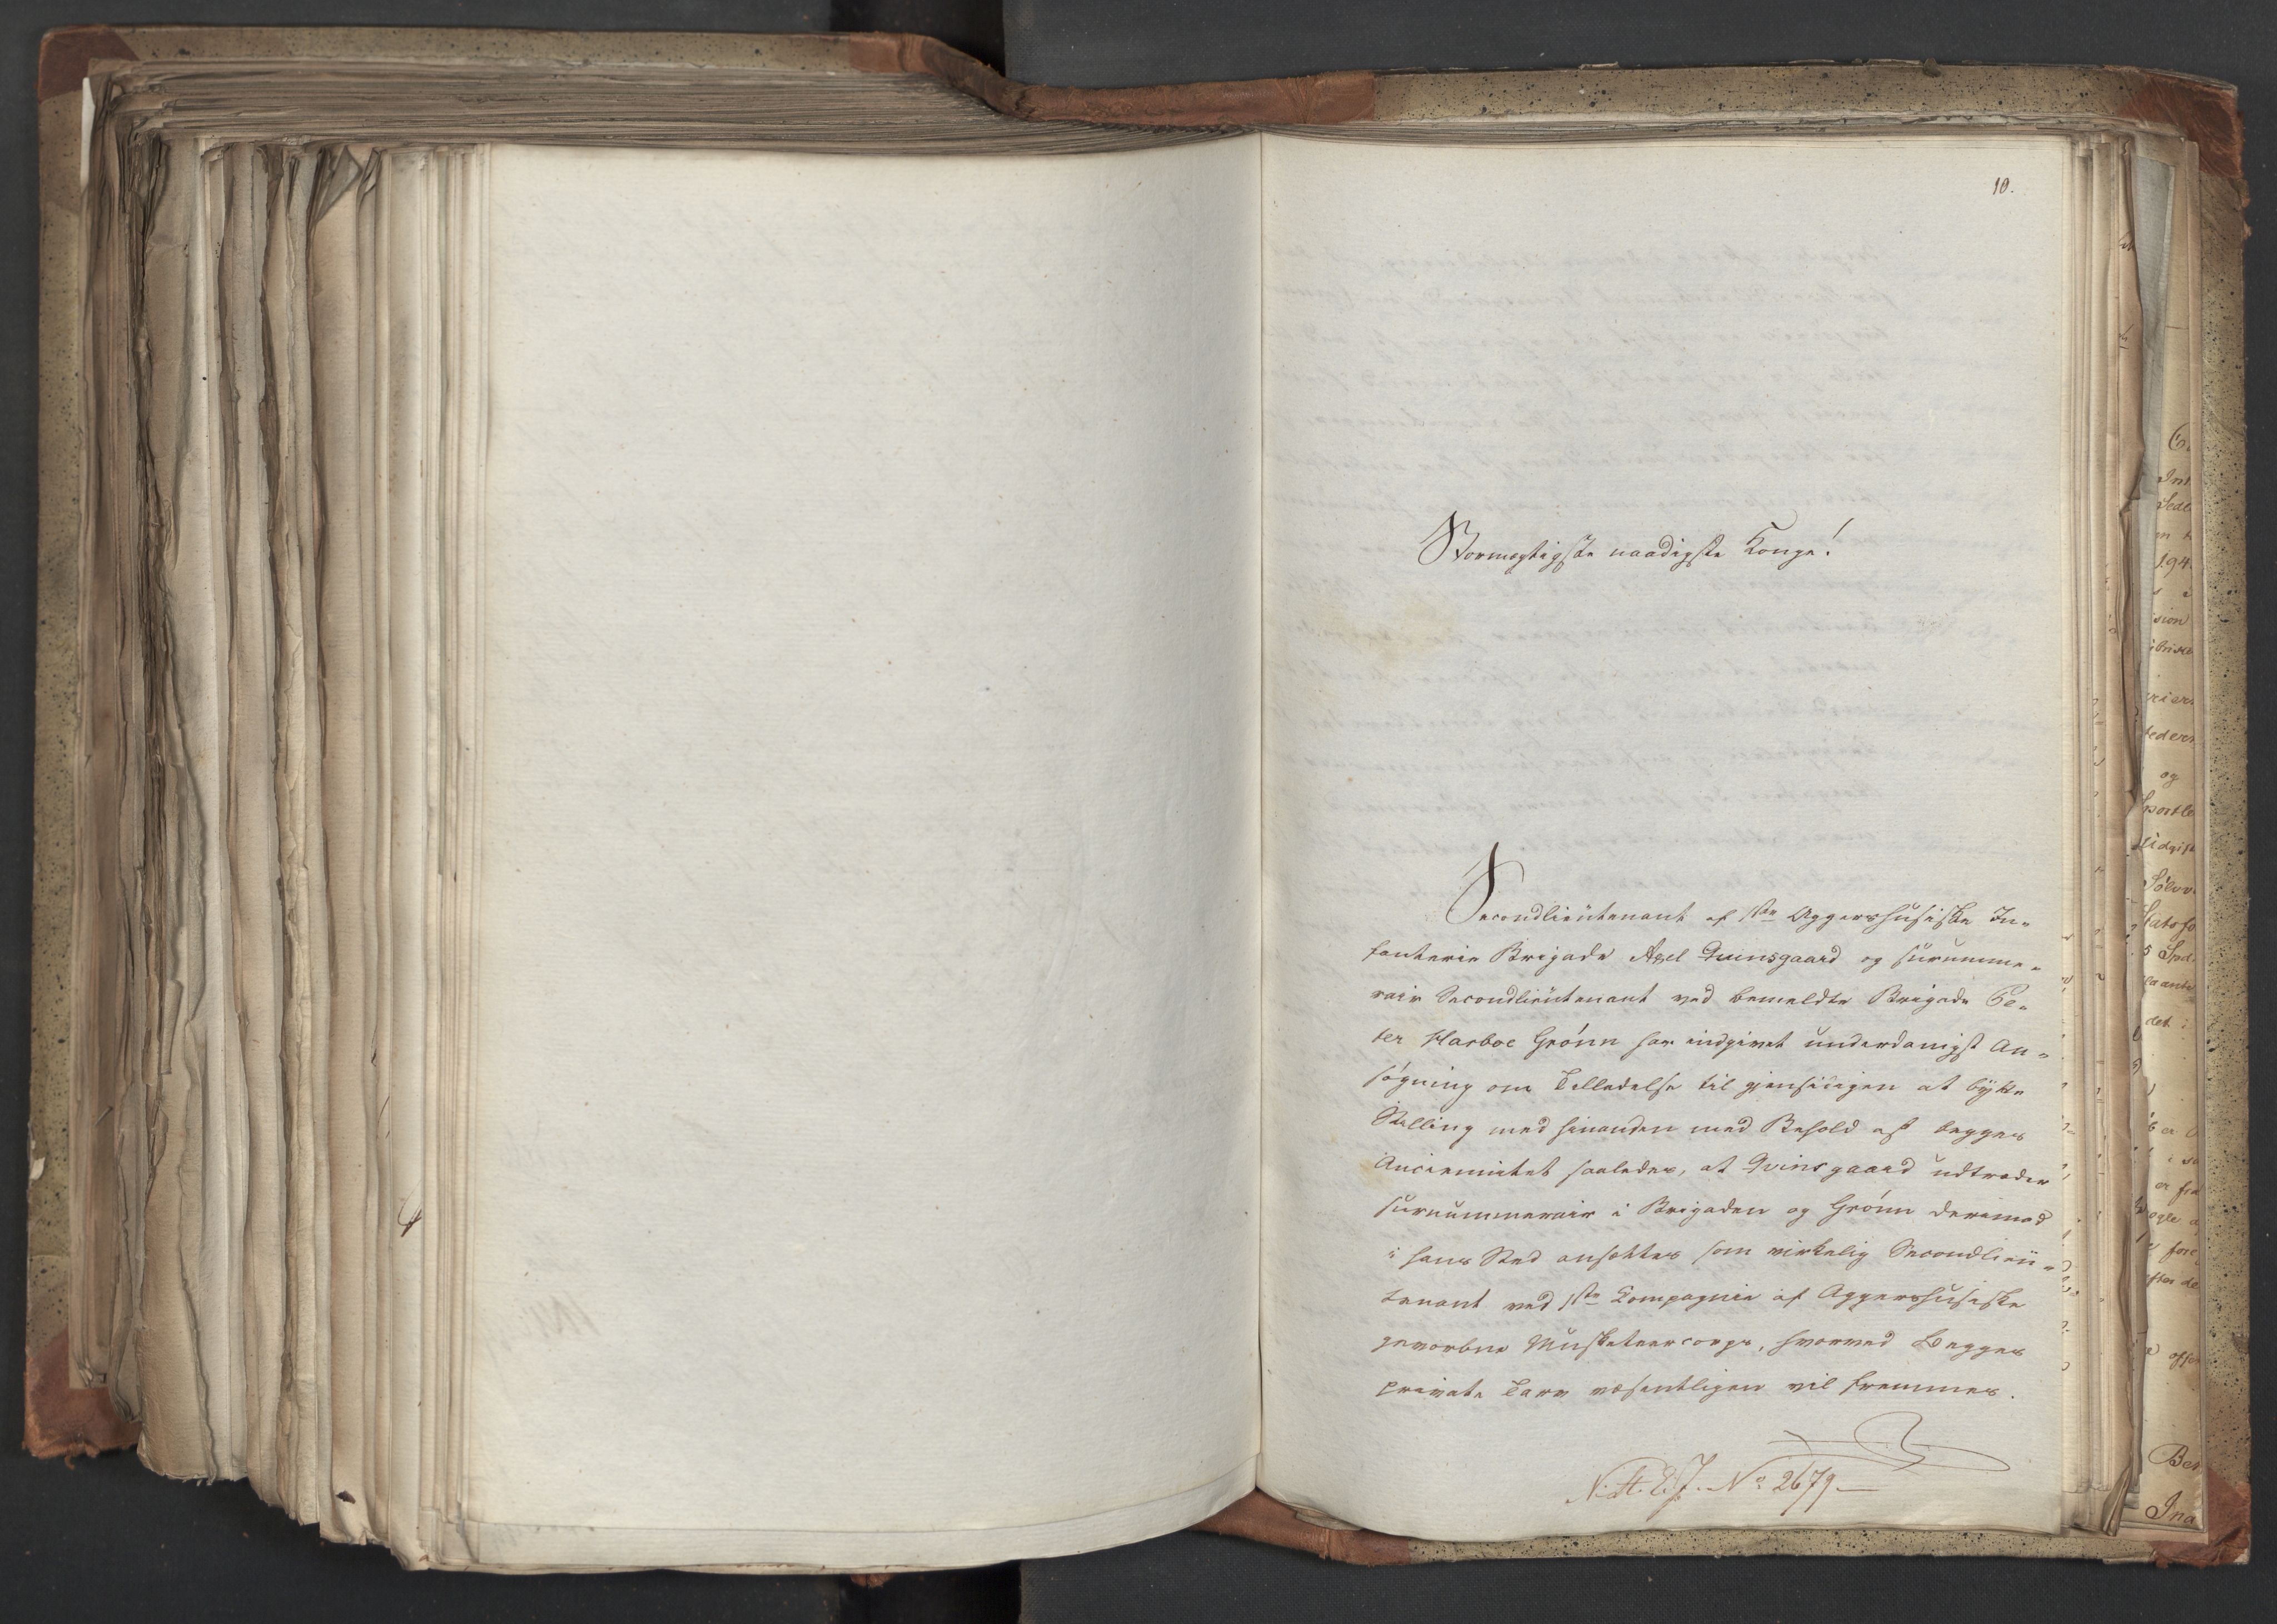 10.
Stormægtigste naadigste Konge!
Secondlieutenant af 1ste Aggershusiske In-
fanterie Brigade Axel Qvinsgaard og surnumme-
rair Secondlieutenant ved bemeldte Brigade Pe-
ter Harboe Grönn har indgivet underdanigst An-
søgning om Tilladelse til gjensidigen at bytte
Stilling med hinanden med Behold af begges
Anciennitet saaledes, at Qvinsgaard udtræder
surnummerair i Brigaden og Grönn derimod
i hans Sted ansættes som virkelig Secondlieu-
tenant ved 1ste Compagnie af Aggershusiske
gevorbne Musketeercorps, hvorved Begges
private Tarv væsentligen vil fremmes.
No 2679